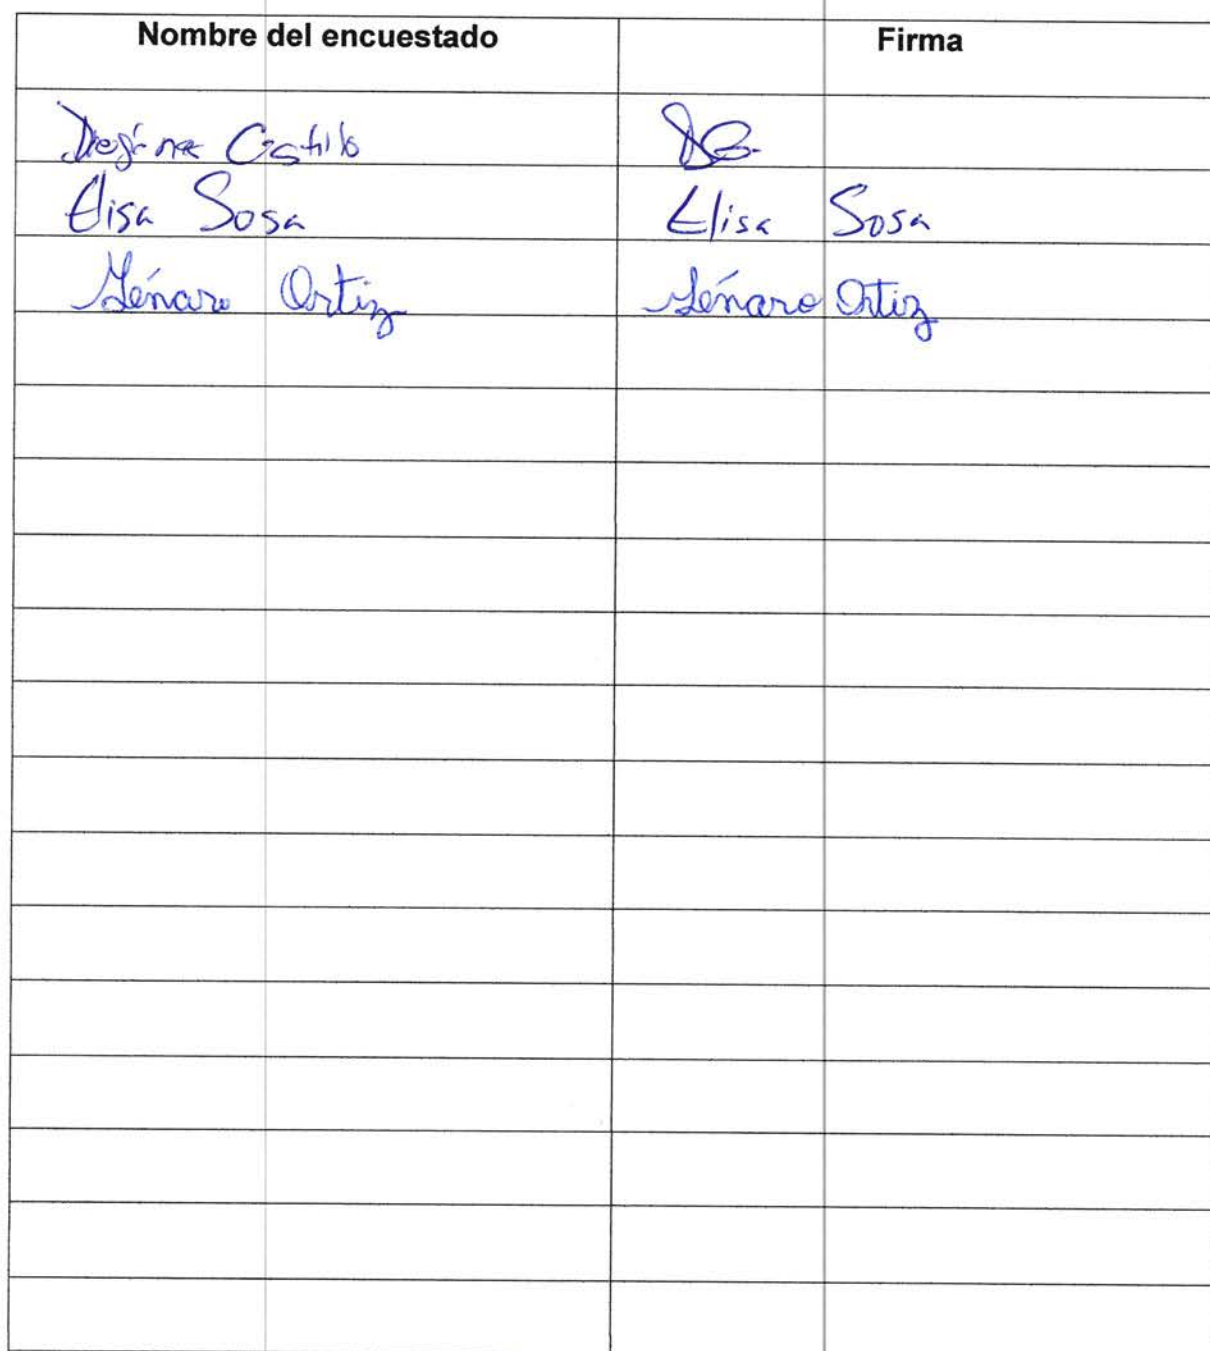 Nombre del encuestado Firma
Castillo
Elisa Sosa Elisa Sosa
Génaro Ortiz Génaro Ortiz